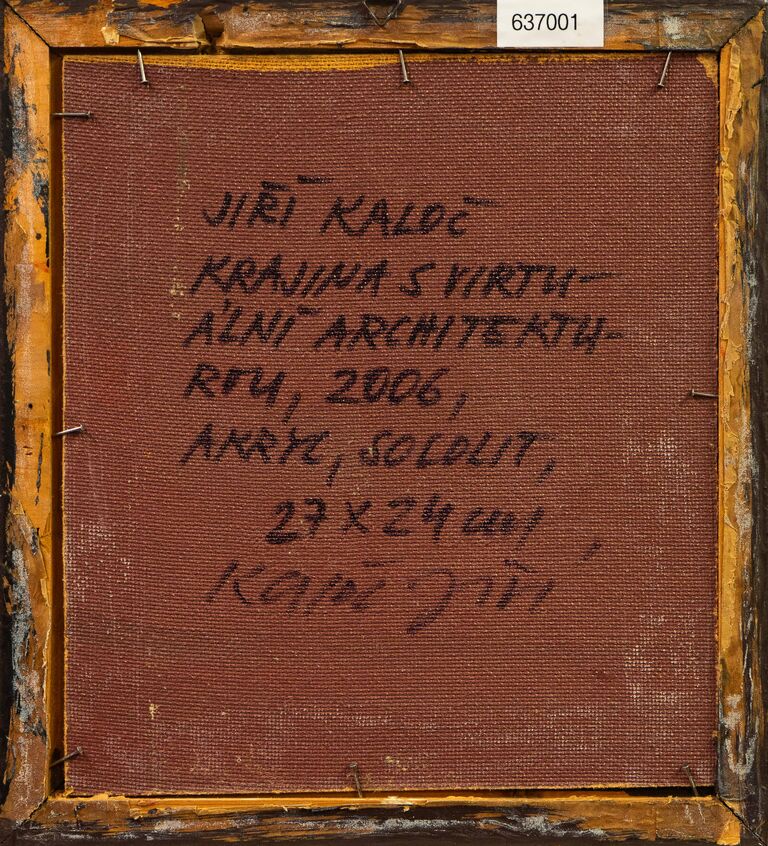 637001
JIŘÍ KALOČ
KRAJINA S VIRTU-
ÁLNÍ ARCHITEKTU-
ROU, 2006,
AKRYL, SOLOLIT,
27 X 24 cm,
Kaloč Jiří